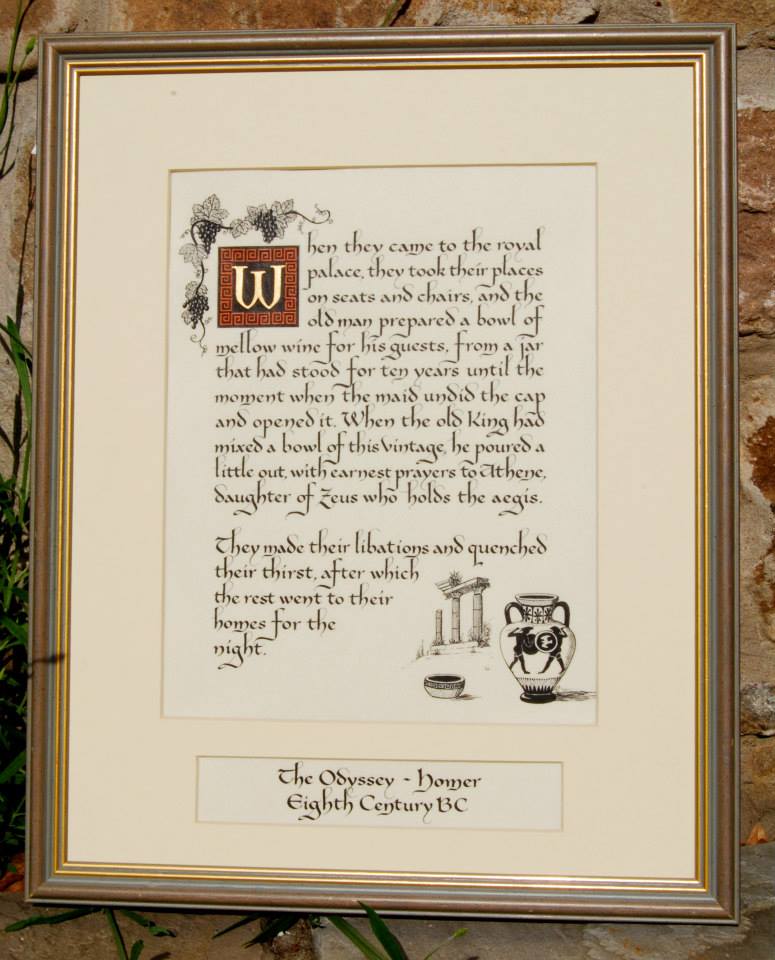 When they came to the royal
palace, they took their places
on seats and chairs, and the
old man prepared a bowl of
mellow wine for his guests, from a jar
that had stood for ten years until the
moment when the maid undid the cap
and opened it. When the old King had
mixed a bowl of this vintage, he poured a
little out, with earnest prayers to Athene,
daughter of Zeus who holds the aegis.
They made their libations and quenched
their thirst, after which
the rest went to their
homes for the
night.
The Odyssey - Homer
Eighth Century BC